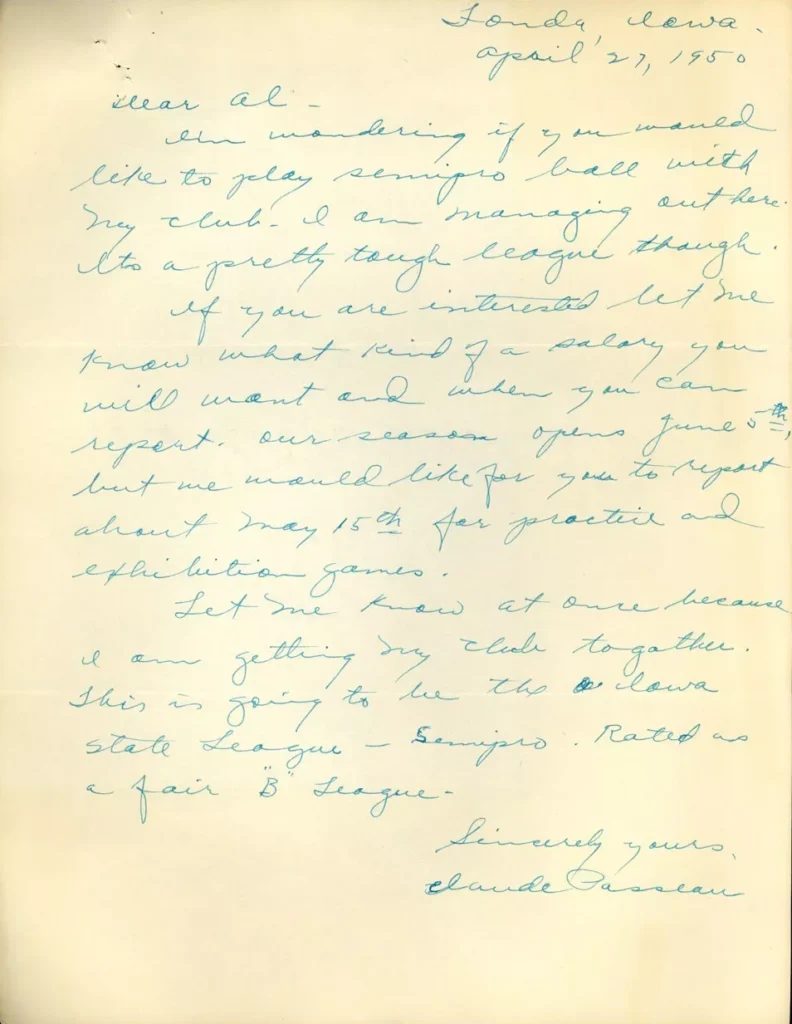 Fonda, Iowa.
April 27, 1950
Dear Al -
I'm wondering if you would
like to play semipro ball with
my club - I am managing out here.
Its a pretty tough league though.
If you are interested let me
know what kind of a salary you
will want and when you can
report. Our season opens June 5th,
but we would like for you to report
about May 15th for practice and
exhibition games.
Let me know at once because
I am getting my club togather.
This is going to be the Iowa
State League - Semipro. Rated as
a fair "B" League -
Sincerely yours,
Claude Passeau